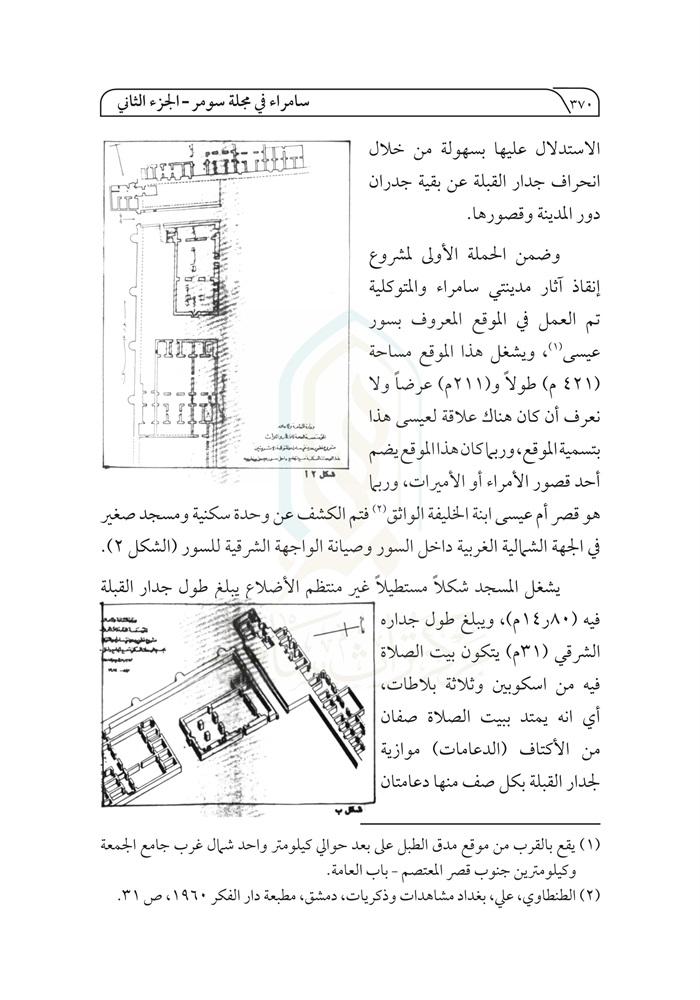 ٣٧٠
سامراء في مجلة سومر – الجزء الثاني
الاستدلال عليها بسهولة من خلال
انحراف جدار القبلة عن بقية جدران
دور المدينة وقصورها.
وضمن الحملة الأولى لمشروع
إنقاذ آثار مدينتي سامراء والمتوكلية
تم العمل في الموقع المعروف بسور
عيسى(١)، ويشغل هذا الموقع مساحة
(٤٢١ م) طولاً و(٢١١م) عرضاً ولا
نعرف أن كان هناك علاقة لعيسى هذا
بتسمية الموقع، وربما كان هذا الموقع يضم
أحد قصور الأمراء أو الأميرات، وربما
هو قصر أم عيسى ابنة الخليفة الواثق(٢) فتم الكشف عن وحدة سكنية ومسجد صغير
في الجهة الشمالية الغربية داخل السور وصيانة الواجهة الشرقية للسور (الشكل ٢).
شكل ٢ أ
يشغل المسجد شكلاً مستطيلاً غير منتظم الأضلاع يبلغ طول جدار القبلة
فيه (١٤٫٨٠م)، ويبلغ طول جداره
الشرقي (٣١م) يتكون بيت الصلاة
فيه من اسكوبين وثلاثة بلاطات،
أي انه يمتد ببيت الصلاة صفان
من الأكتاف (الدعامات) موازية
لجدار القبلة بكل صف منها دعامتان
شكل ب
(١) يقع بالقرب من موقع مدق الطبل على بعد حوالي كيلومتر واحد شمال غرب جامع الجمعة
وكيلومترين جنوب قصر المعتصم - باب العامة.
(٢) الطنطاوي، علي، بغداد مشاهدات وذكريات، دمشق، مطبعة دار الفكر ١٩٦٠، ص ٣١.